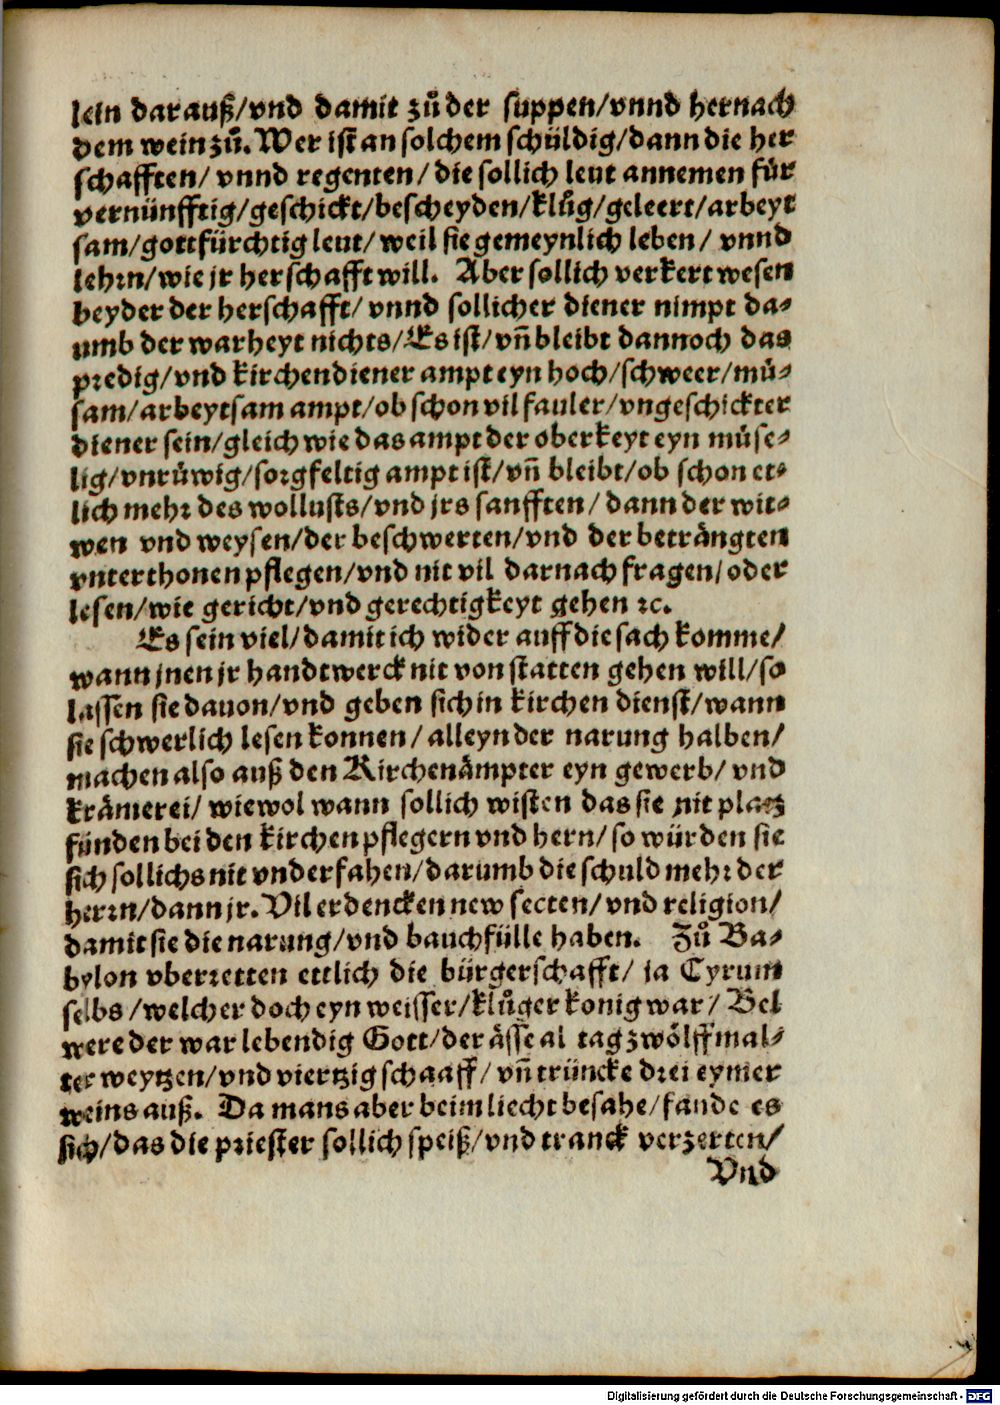 lein darauß/vnd damit zů der suppen/vnnd hernach
dem wein zů. Wer ist an solchem schüldig/dann die her
schafften/ vnnd regenten/ die sollich leut annemen für
vernünfftig/geschickt/bescheyden/klůg/geleert/arbeyt
sam/gottfürchtig leut/ weil sie gemeynlich leben/ vnnd
lehrn/wie jr herschafft will. Aber sollich verkert wesen
beyder der herschafft/ vnnd sollicher diener nimpt da-
umb der warheyt nichts/Es ist/vn̄ bleibt dannoch das
predig/vnd kirchendiener ampt eyn hoch/schweer/mů-
sam/arbeytsam ampt/ob schon vil fauler/vngeschickter
diener sein/gleich wie das ampt der oberkeyt eyn můse-
lig/vnrůwig/sorgfeltig ampt ist/vn̄ bleibt/ob schon et-
lich mehr des wollusts/vnd jrs sanfften/ dann der wit-
wen vnd weysen/der beschwerten/vnd der beträngten
vnterthonen pflegen/vnd nit vil darnach fragen/oder
lesen/wie gericht/vnd gerechtigkeyt gehen ꝛc.
Es sein viel/damit ich wider auff die sach komme/
wann jnen jr handtwerck nit von statten gehen will/so
lassen sie dauon/vnd geben sich in kirchen dienst/wann
sie schwerlich lesen konnen/ alleyn der narung halben/
machen also auß den Kirchenämpter eyn gewerb/ vnd
krämerei/ wiewol wann sollich wisten das sie nit platz
fünden bei den kirchenpflegern vnd hern/ so würden sie
sich sollichs nit vnderfahen/darumb die schuld mehr der
herrn/dann jr. Vil erdencken new secten/ vnd religion/
damit sie die narung/vnd bauchfülle haben. Zů Ba-
bylon vberretten ettlich die bürgerschafft/ ja Cyrum
selbs/welcher doch eyn weisser/klůger konig war/ Bel
were der war lebendig Gott/der ässe al tag zwölff mal-
ter weytzen/vnd viertzig schaaff/ vn̄ trüncke drei eymer
weins auß. Da mans aber beim liecht besahe/fande es
sich/das die priester sollich speiß/vnd tranck verzerten/
Vnd
Digitalisierung gefördert durch die Deutsche Forschungsgemeinschaft - DFG